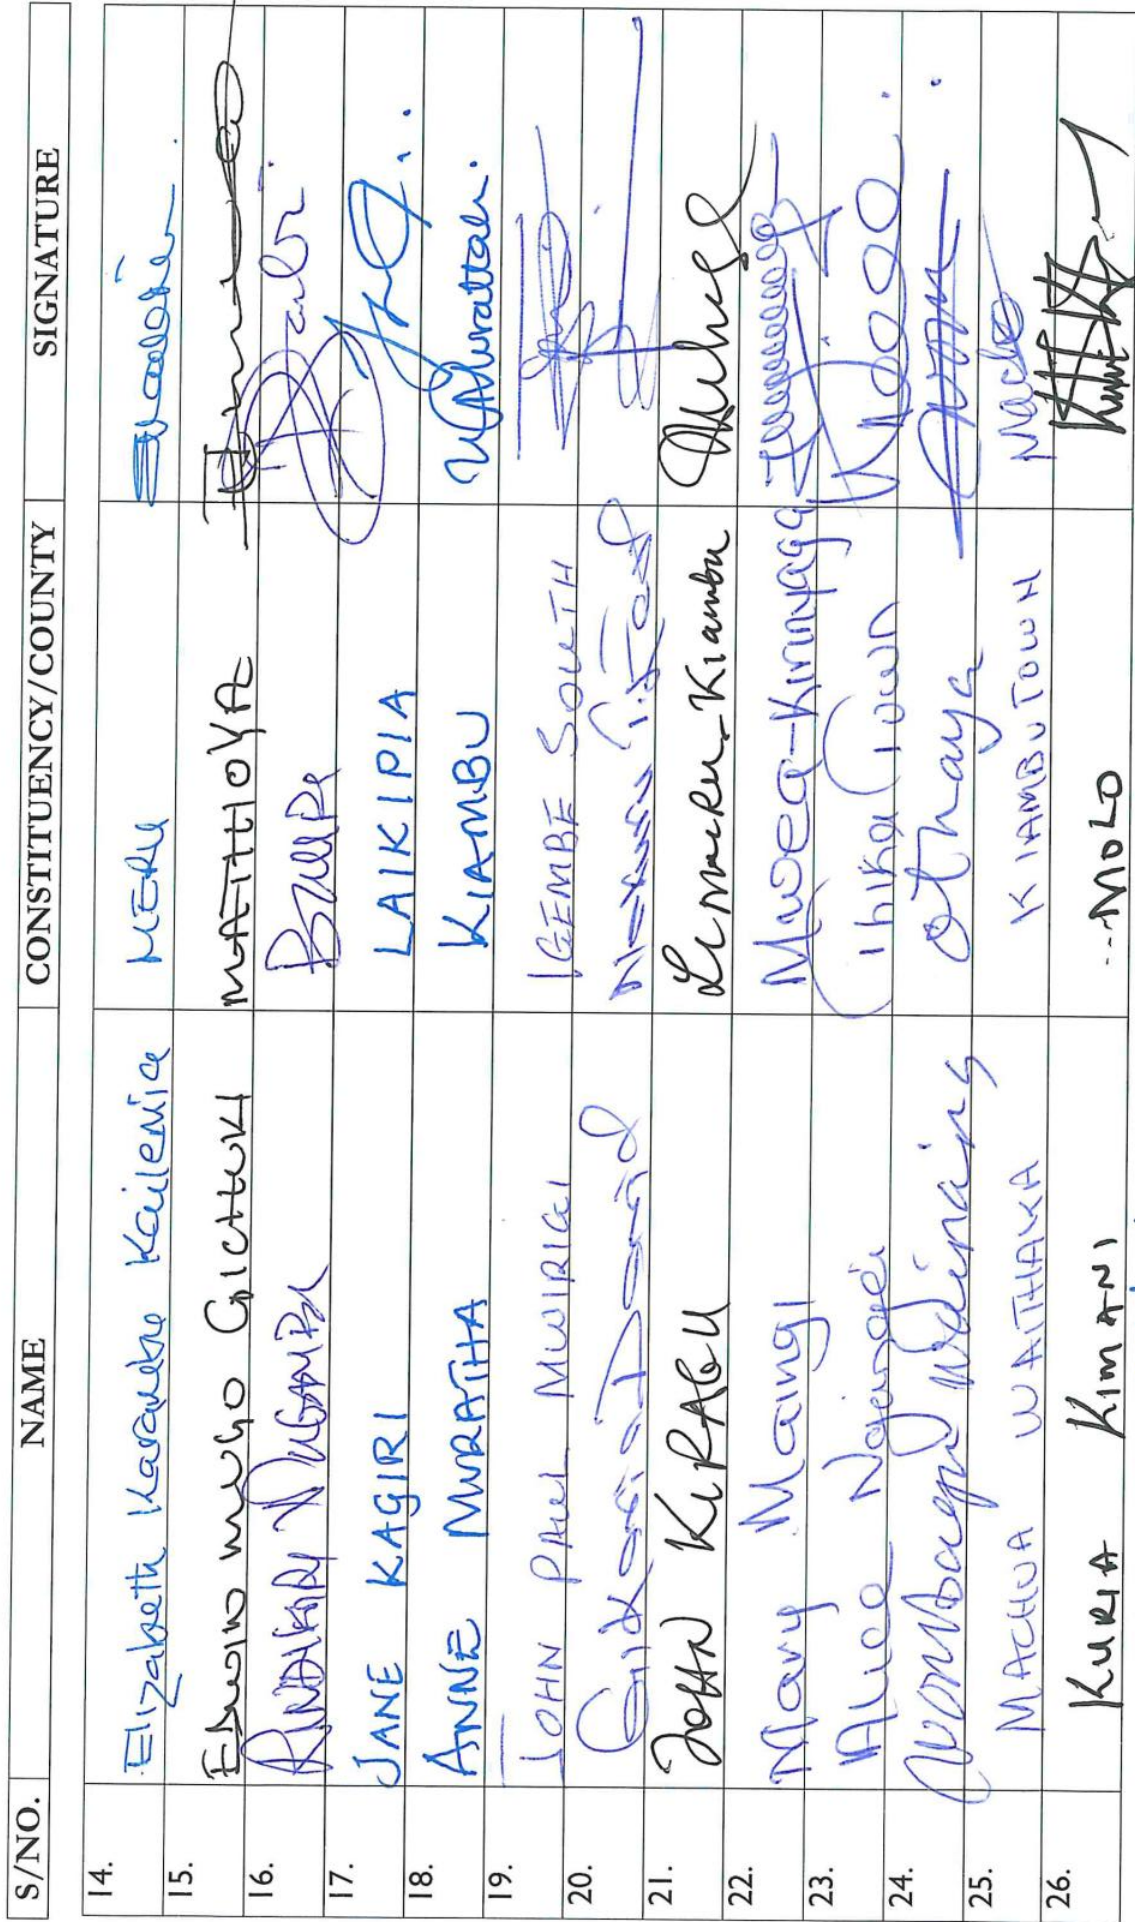 S/NO. NAME CONSTITUENCY/COUNTY SIGNATURE
14. Elizabeth Karambu Kailemia MERU
15. EDWIN MUGO GICHUKI MATHIOYA
16. RINDIKIRI MUGAMBI BUURI
17. JANE KAGIRI LAIKIPIA
18. ANNE MURATHA KIAMBU
19. JOHN PAUL MWIRIGI IGEMBE SOUTH
20. Gikaria David
21. JOHN KIRAGU Limuru-Kiambu
22. Mary Maingi Mwea-Kirinyaga
23. Alice Ng'ang'a Thika Town
24. Othaya
25. MACHUA WAITHAKA KIAMBU TOWN
26. KURIA KIMANI ...MOLO